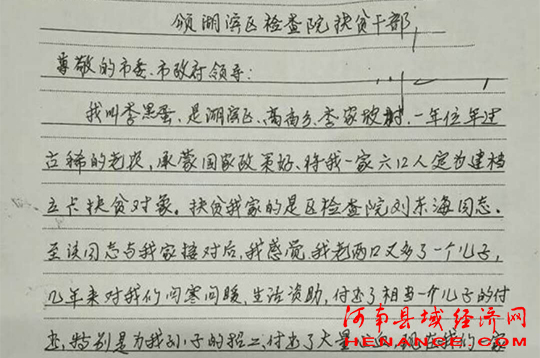 颂湖滨区检查院扶贫干部
尊敬的市委、市政府领导:
我叫李黑蛋,是湖滨区、高庙乡、李家坡村,一年位年过
古稀的老农,承蒙国家政策好、将我一家六口人定为建档
立卡扶贫对象。扶贫我家的是区检查院刘东海同志。
至该同志与我家接对后,我感觉我老两口又多了一个儿子,
几年来对我们问寒问暖,生活资助,付出了相当一个儿子的付
出,特别是为我孙子的招工,付出了大量
河南县域经济网
HENANCE.COM